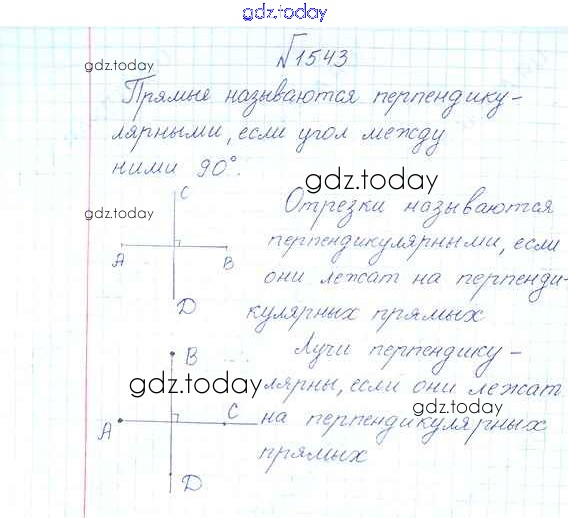 gdz.today
№1543
gdz.today
Прямые называются перпендику-
лярными, если угол между
ними 90°.
gdz.today
C
gdz.today
Отрезки называются
перпендикулярными, если
A B
они лежат на перпенди-
D
кулярных прямых
B
Лучи перпендику-
gdz.today
лярны, если они лежат
gdz.today
A C
на перпендикулярных
прямых
D